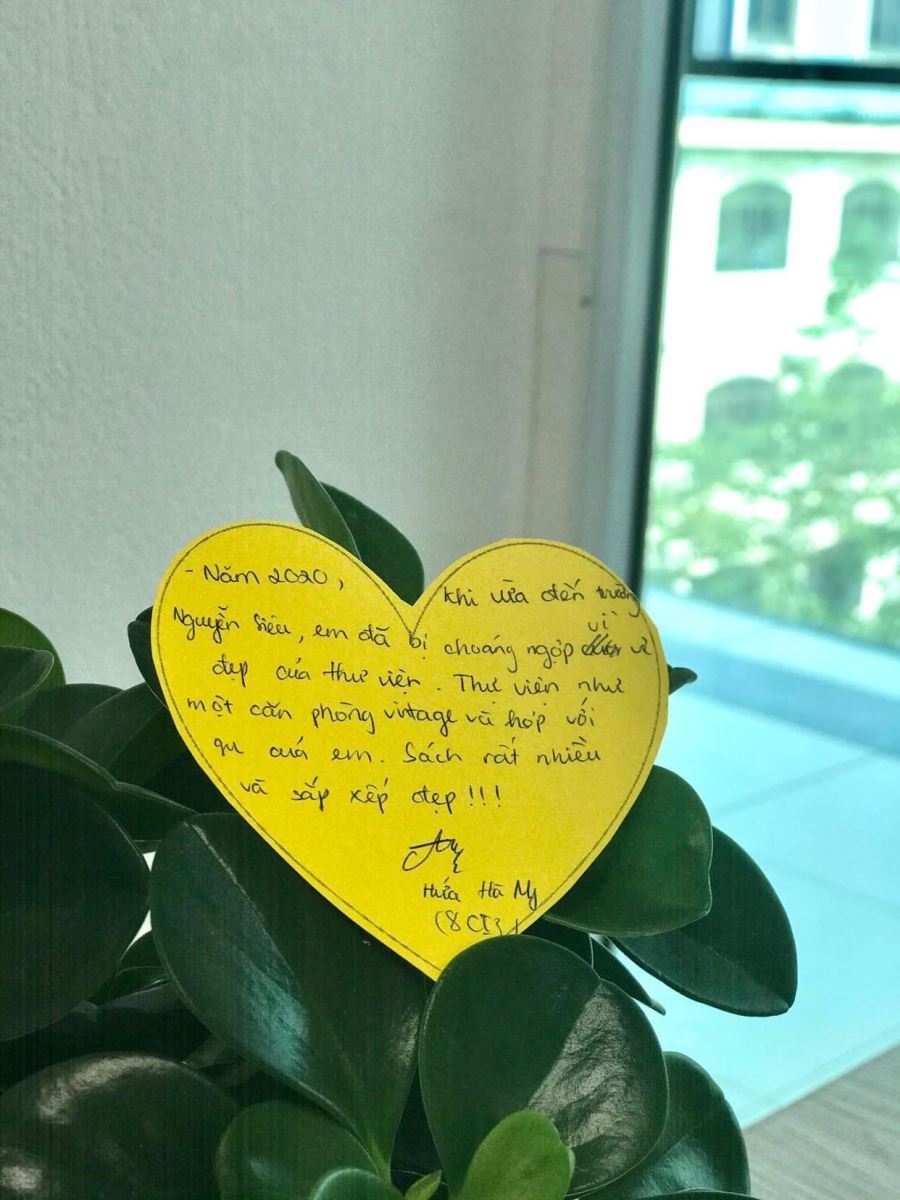 - Năm 2020, khi vừa đến trường
Nguyễn Siêu, em đã bị choáng ngợp vì vẻ
đẹp của thư viện. Thư viện như
một căn phòng vintage và hợp với
gu của em. Sách rất nhiều
và sắp xếp đẹp!!!
Hứa Hà My
(8CI3)